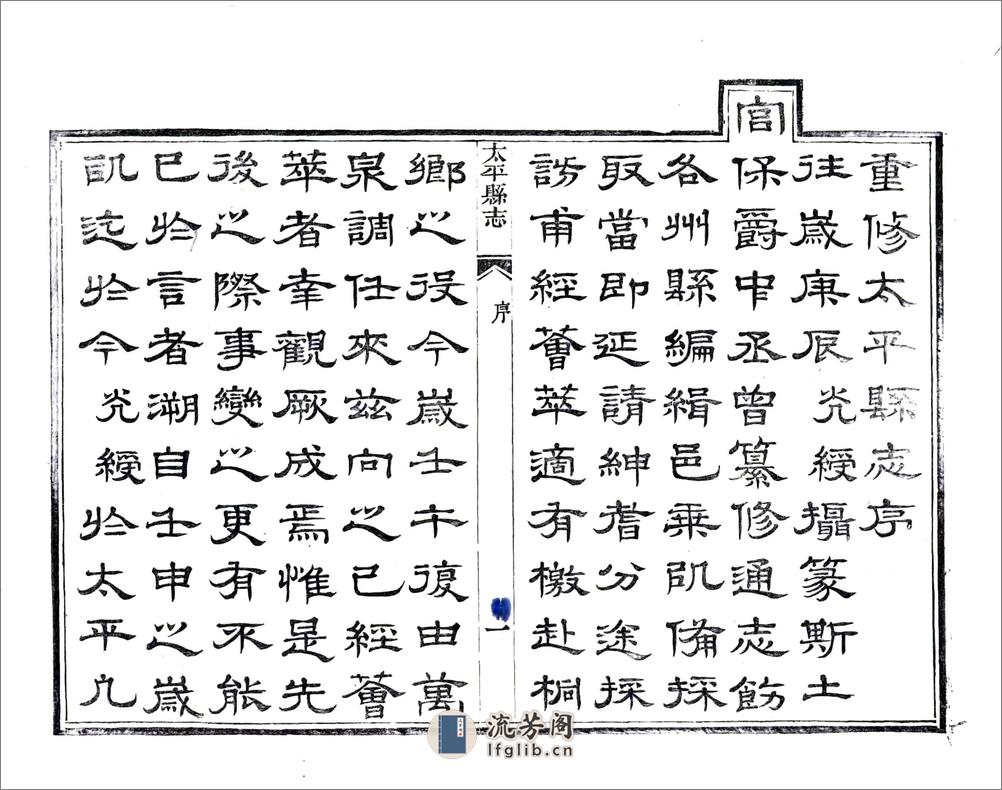 重修太平縣志序
往歲庚辰光綬攝篆斯土
官
保爵中丞曾纂修通志飭
各州縣編緝邑乘以備採
取當即延請紳耆分途採
訪甫經薈萃適有檄赴桐
太平縣志
序
一
鄉之役今歲壬午復由萬
泉調任來茲向之已經薈
萃者幸觀厥成焉惟是先
後之際事變之更有不能
已於言者溯自壬申之歲
以迄於今光綬於太平凡
流芳阁
lfglib.cn